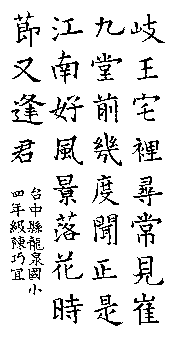 岐王宅裡尋常見崔
九堂前幾度聞正是
江南好風景落花時
節又逢君
台中縣龍泉國小
四年級陳巧宜